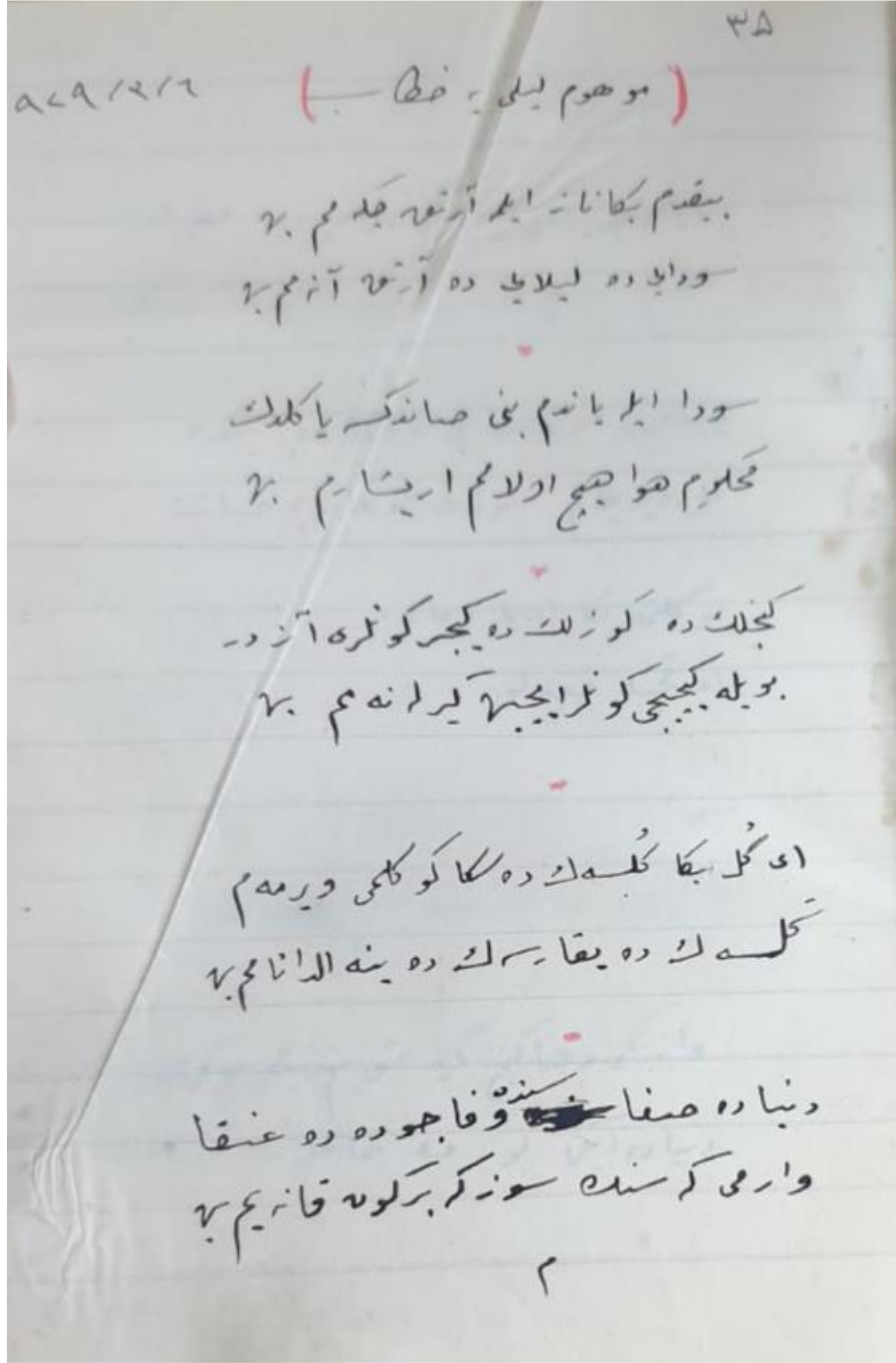 ٣۵
( موهوم ليلى يه خطاب )
٩٧٩/٣/٦
بيقدم بكا ناز ايله آرتق چكه مم بن
سوداى ده ليلاى ده آرتق آنه مم بن
سودا ايله ياندم بنى صاندكسه ياكلدك
محلوم هوا هيچ اولامم اريشارم بن
كنجلك ده كوزلك ده كيجر كونلرى آزدر
بويله كيچيجى كونلر ايچين كيرلنه مم بن
اى گل بكا گلسه ك ده سكا كوكلمى ويرمه م
گلسه ك ده يقارسه ك ده ينه الدانامم بن
دنياده صفا سنده وفا جوده ده عنقا
وارمى كه سنك سوزكه بركون قانه يم بن
م